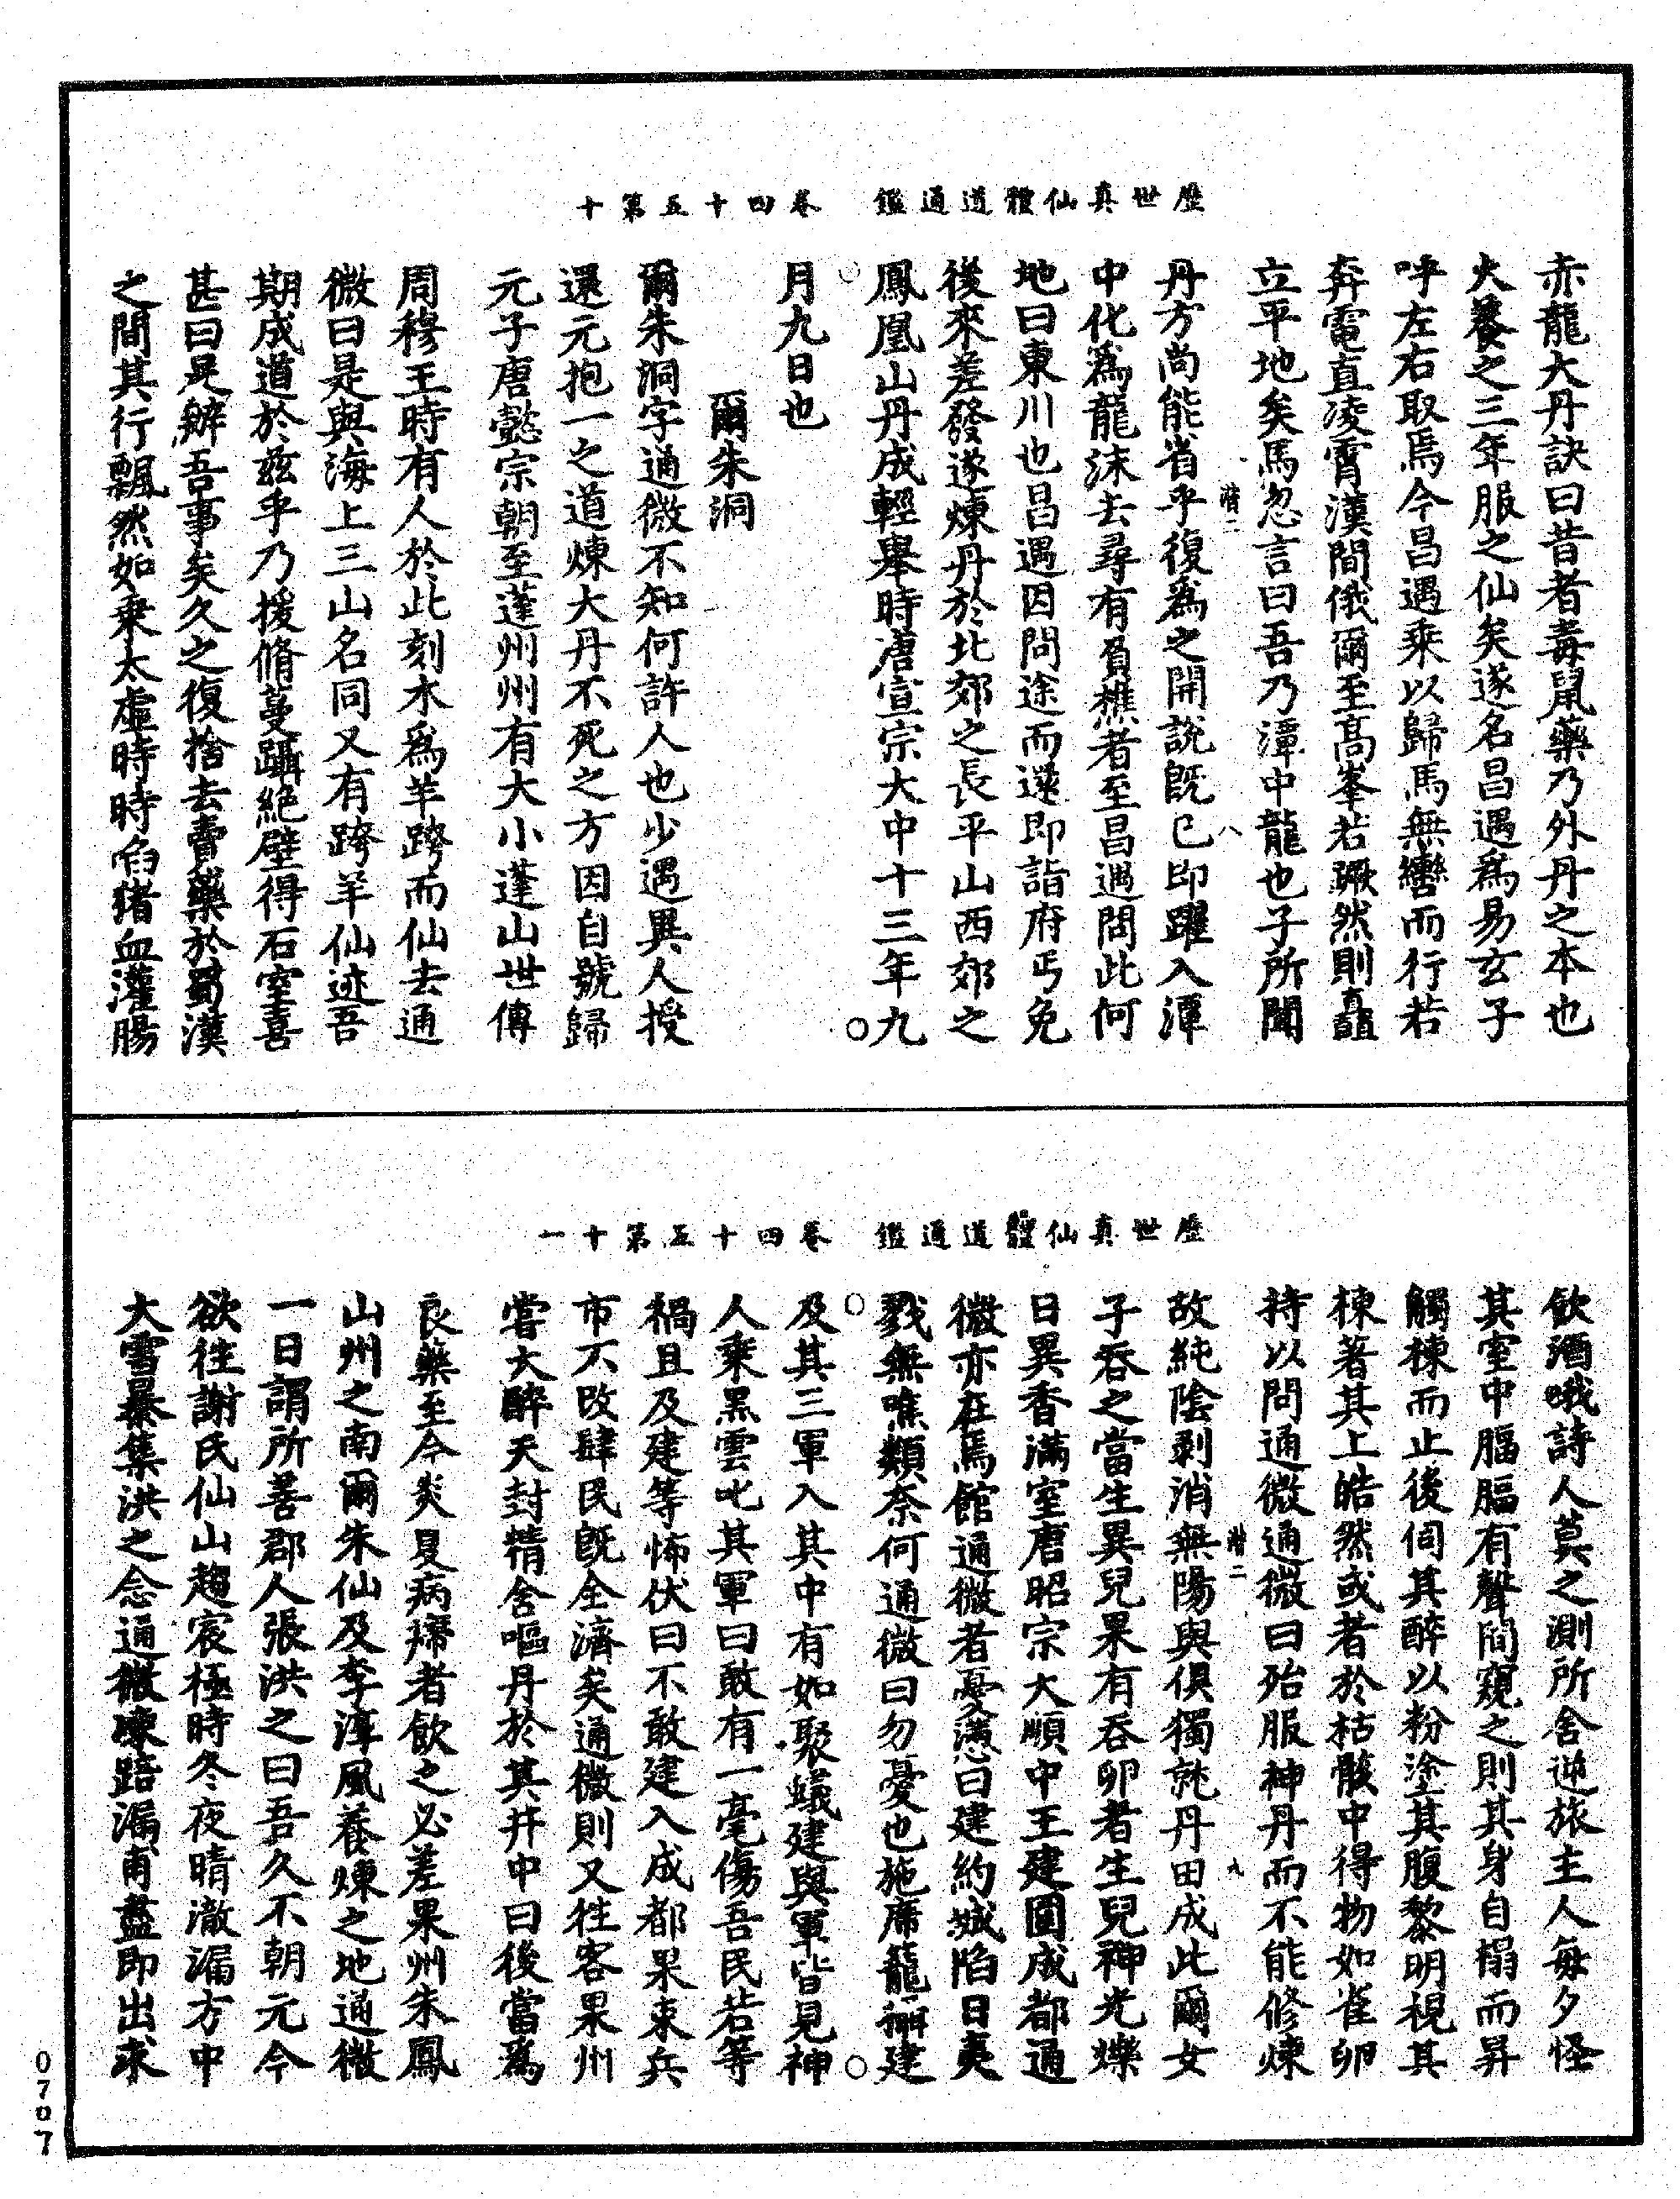 歷世真仙體道通鑑　卷四十五第十
赤龍大丹訣曰昔者毒鼠藥乃外丹之本也
火養之三年服之仙矣遂名昌遇爲易玄子
呼左右取焉今昌遇乘以歸馬無轡而行若
奔電直凌霄漢間俄爾至高峯若蹶然則矗
立平地矣馬忽言曰吾乃潭中龍也子所聞
丹方尚能省乎復爲之開說旣已即躍入潭
中化爲龍沫去尋有負樵者至昌遇問此何
地曰東川也昌遇因問途而還即詣府丐免
後來差發遂煉丹於北郊之長平山西郊之
鳳凰山丹成輕舉時唐宣宗大中十三年九
月九日也
爾朱洞
爾朱洞字通微不知何許人也少遇異人授
還元抱一之道煉大丹不死之方因自號歸
元子唐懿宗朝至蓬州州有大小蓬山世傳
周穆王時有人於此刻木爲羊跨而仙去通
微曰是與海上三山名同又有跨羊仙迹吾
期成道於兹乎乃援脩蔓躡絕壁得石室喜
甚曰足辦吾事矣久之復捨去賣藥於蜀漢
之間其行飄然如乘太虛時時䧟猪血灌腸
歷世真仙體道通鑑　卷四十五第十一
飲酒哦詩人莫之測所舍逆旅主人每夕怪
其室中腷腷有聲間窺之則其身自榻而昇
觸棟而止後伺其醉以粉塗其腹黎明視其
棟著其上皓然或者於枯骸中得物如雀卵
持以問通微通微曰殆服神丹而不能修煉
故純陰剥消無陽與俱獨就丹田成此爾女
子吞之當生異兒果有吞卵者生兒神光爍
日異香滿室唐昭宗大順中王建圍成都通
微亦在焉館通微者憂懣曰建約城陷日夷
戮無噍類奈何通微曰勿憂也施席籠禂建
及其三軍入其中有如聚蟻建與軍皆見神
人乘黑雲叱其軍曰敢有一毫傷吾民若等
禍且及建等怖伏曰不敢建入成都果束兵
市不改肆民旣全濟矣通微則又徃客果州
嘗大醉天封精舍嘔丹於其井中曰後當爲
良藥至今炎夏病𤸁者飲之必差果州朱鳳
山州之南爾朱仙及李淳風養煉之地通微
一日謂所善郡人張洪之曰吾久不朝元今
欲徃謝氏仙山趨宸極時冬夜晴澈漏方中
大雪暴集洪之念通微凍踣漏甫盡即出求
0707